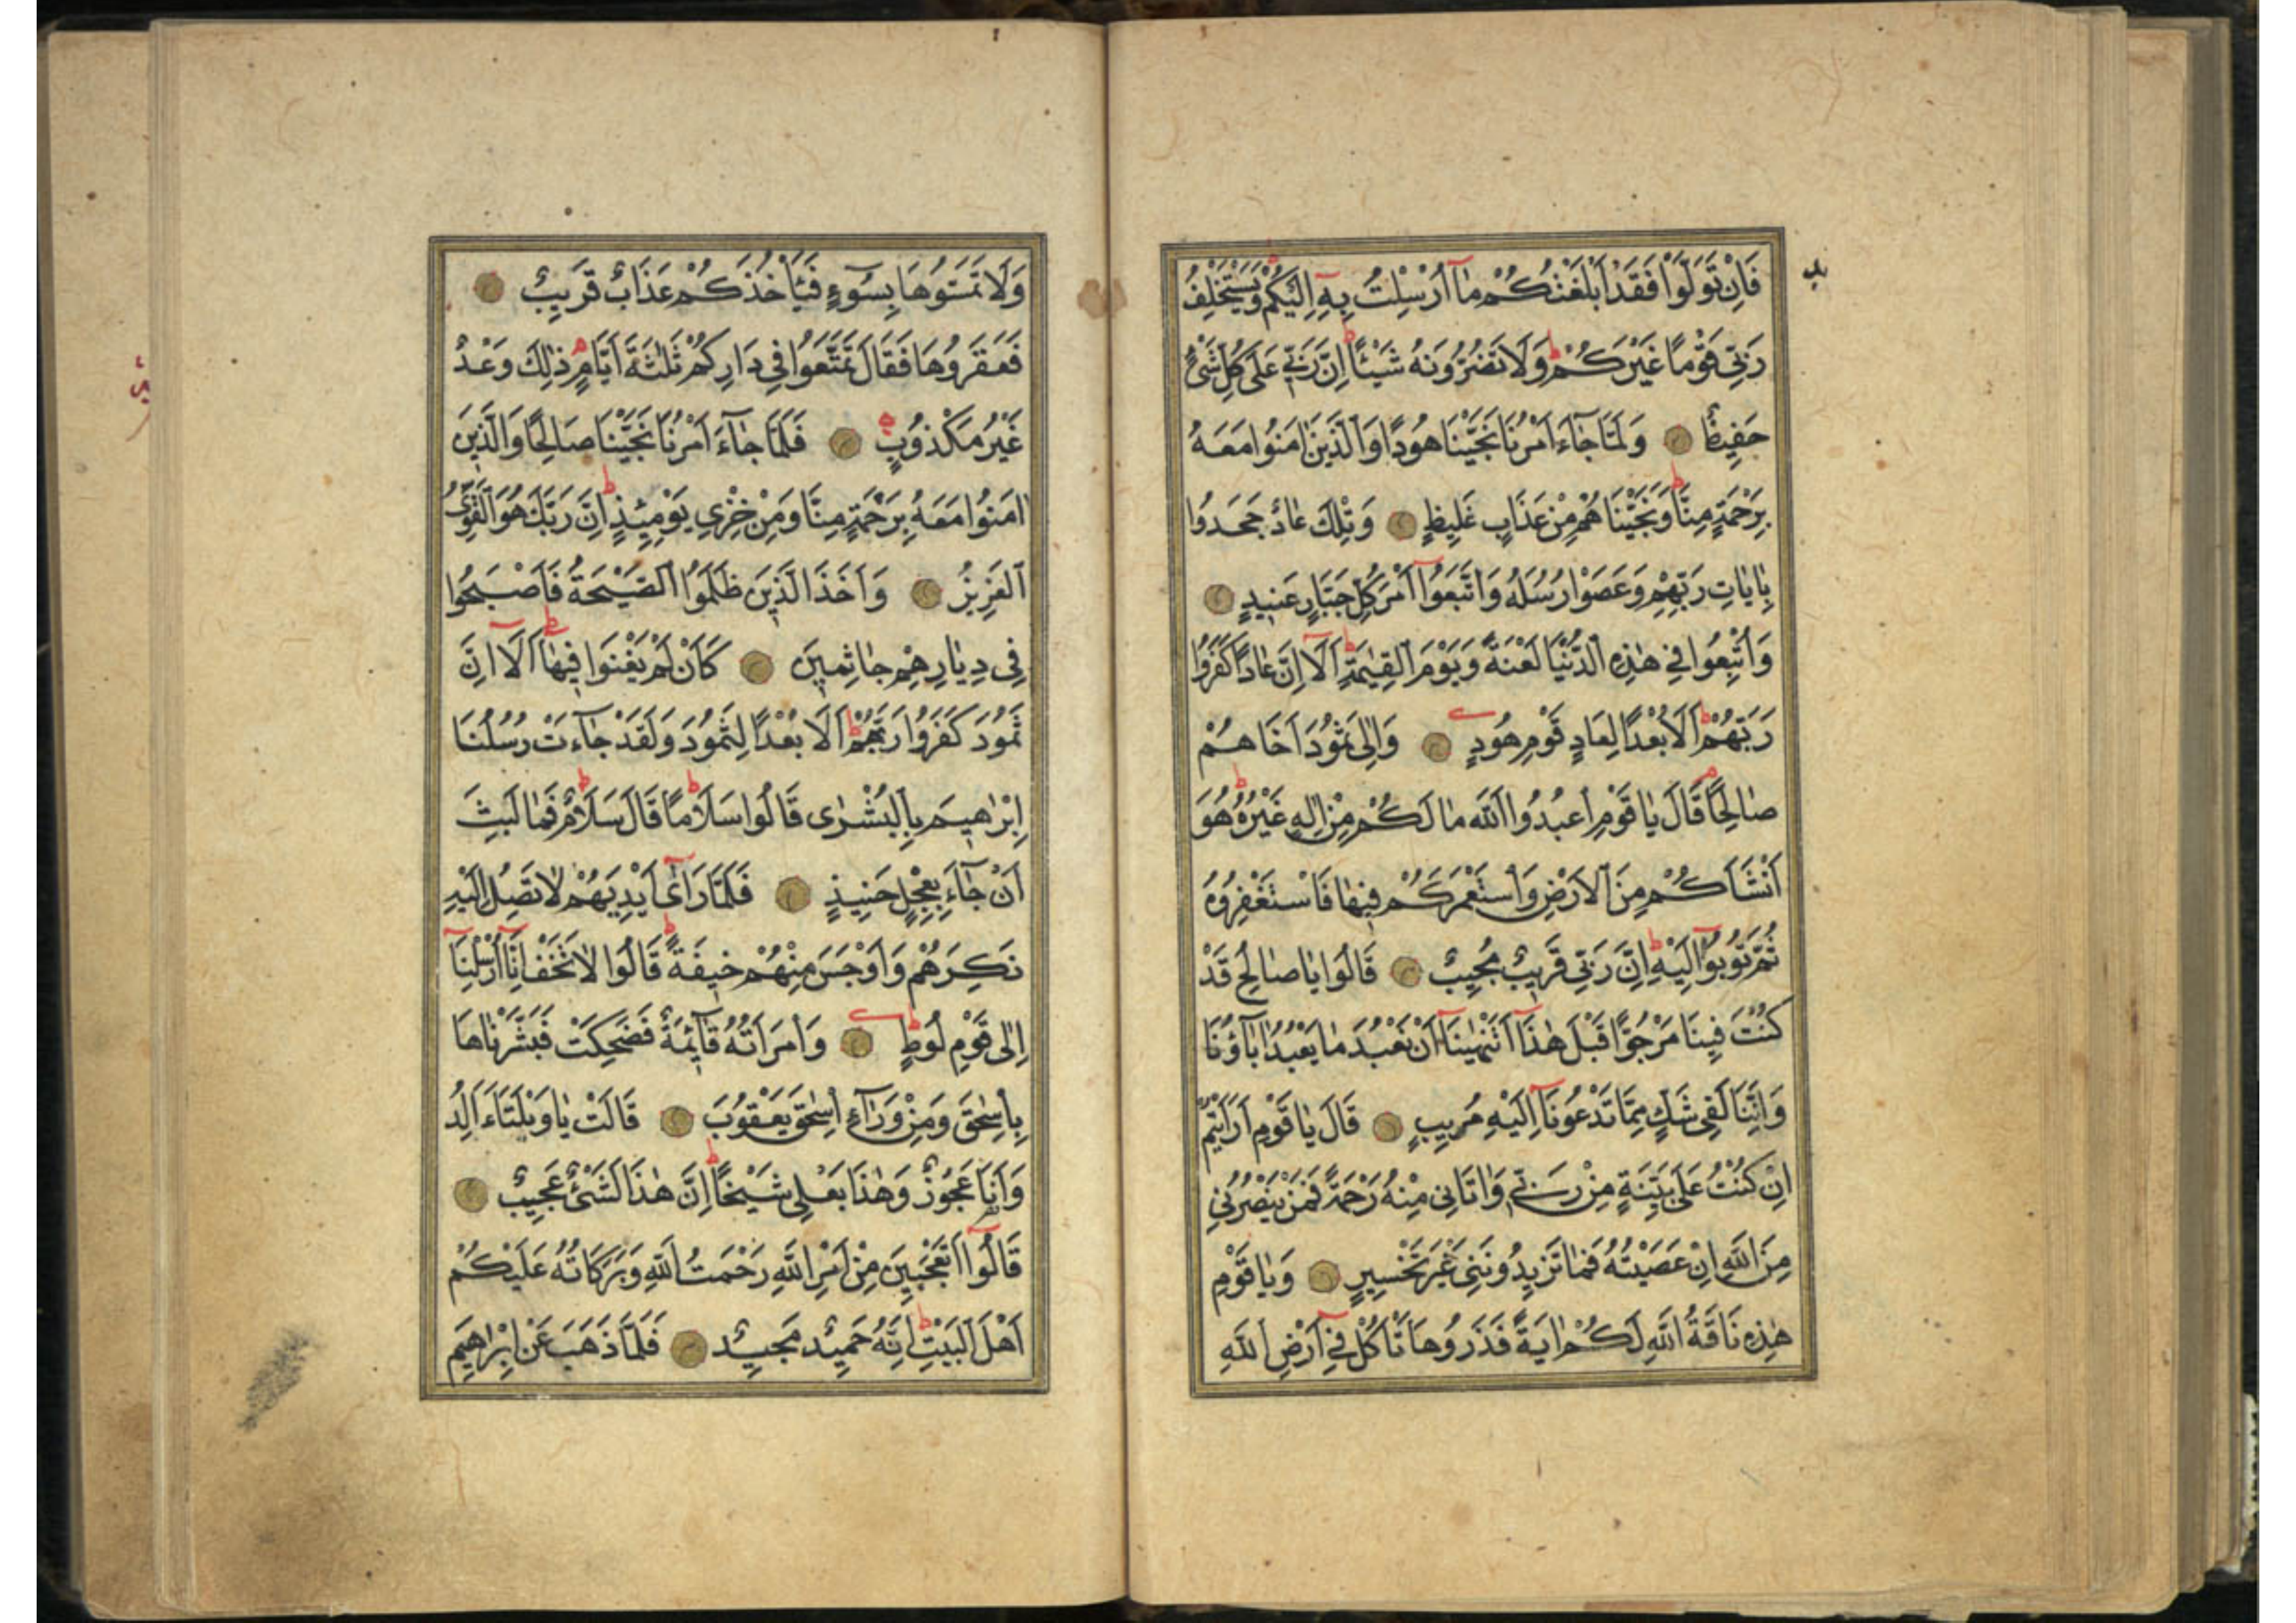 فَاِنْ تَوَلَّوْا فَقَدْ اَبْلَغْتُكُمْ مَٓا اُرْسِلْتُ بِهٖٓ اِلَيْكُمْ وَيَسْتَخْلِفُ
رَبّٖى قَوْمًا غَيْرَكُمْ وَلَا تَضُرُّونَهُ شَيْئًا اِنَّ رَبّٖى عَلٰى كُلِّ شَىْءٍ
حَفٖيظٌ وَلَمَّا جَٓاءَ اَمْرُنَا نَجَّيْنَا هُودًا وَالَّذٖينَ اٰمَنُوا مَعَهُ
بِرَحْمَةٍ مِنَّا وَنَجَّيْنَاهُمْ مِنْ عَذَابٍ غَلٖيظٍ وَتِلْكَ عَادٌ جَحَدُوا
بِاٰيَاتِ رَبِّهِمْ وَعَصَوْا رُسُلَهُ وَاتَّبَعُٓوا اَمْرَ كُلِّ جَبَّارٍ عَنٖيدٍ
وَاُتْبِعُوا فٖى هٰذِهِ الدُّنْيَا لَعْنَةً وَيَوْمَ الْقِيٰمَةِ اَلَٓا اِنَّ عَادًا كَفَرُوا
رَبَّهُمْ اَلَا بُعْدًا لِعَادٍ قَوْمِ هُودٍ وَاِلٰى ثَمُودَ اَخَاهُمْ
صَالِحًا قَالَ يَا قَوْمِ اعْبُدُوا اللّٰهَ مَا لَكُمْ مِنْ اِلٰهٍ غَيْرُهُ هُوَ
اَنْشَاَكُمْ مِنَ الْاَرْضِ وَاسْتَعْمَرَكُمْ فٖيهَا فَاسْتَغْفِرُوهُ
ثُمَّ تُوبُٓوا اِلَيْهِ اِنَّ رَبّٖى قَرٖيبٌ مُجٖيبٌ قَالُوا يَا صَالِحُ قَدْ
كُنْتَ فٖينَا مَرْجُوًّا قَبْلَ هٰذَٓا اَتَنْهٰينَٓا اَنْ نَعْبُدَ مَا يَعْبُدُ اٰبَٓاؤُنَا
وَاِنَّنَا لَفٖى شَكٍّ مِمَّا تَدْعُونَٓا اِلَيْهِ مُرٖيبٍ قَالَ يَا قَوْمِ اَرَاَيْتُمْ
اِنْ كُنْتُ عَلٰى بَيِّنَةٍ مِنْ رَبّٖى وَاٰتَانٖى مِنْهُ رَحْمَةً فَمَنْ يَنْصُرُنٖى
مِنَ اللّٰهِ اِنْ عَصَيْتُهُ فَمَا تَزٖيدُونَنٖى غَيْرَ تَخْسٖيرٍ وَيَا قَوْمِ
هٰذِهٖ نَاقَةُ اللّٰهِ لَكُمْ اٰيَةً فَذَرُوهَا تَاْكُلْ فٖٓى اَرْضِ اللّٰهِ
وَلَا تَمَسُّوهَا بِسُٓوءٍ فَيَاْخُذَكُمْ عَذَابٌ قَرٖيبٌ
فَعَقَرُوهَا فَقَالَ تَمَتَّعُوا فٖى دَارِكُمْ ثَلٰثَةَ اَيَّامٍ ذٰلِكَ وَعْدٌ
غَيْرُ مَكْذُوبٍ فَلَمَّا جَٓاءَ اَمْرُنَا نَجَّيْنَا صَالِحًا وَالَّذٖينَ
اٰمَنُوا مَعَهُ بِرَحْمَةٍ مِنَّا وَمِنْ خِزْىِ يَوْمِئِذٍ اِنَّ رَبَّكَ هُوَ الْقَوِىُّ
الْعَزٖيزُ وَاَخَذَ الَّذٖينَ ظَلَمُوا الصَّيْحَةُ فَاَصْبَحُوا
فٖى دِيَارِهِمْ جَاثِمٖينَ كَاَنْ لَمْ يَغْنَوْا فٖيهَا اَلَٓا اِنَّ
ثَمُودَ كَفَرُوا رَبَّهُمْ اَلَا بُعْدًا لِثَمُودَ وَلَقَدْ جَٓاءَتْ رُسُلُنَا
اِبْرٰهٖيمَ بِالْبُشْرٰى قَالُوا سَلَامًا قَالَ سَلَامٌ فَمَا لَبِثَ
اَنْ جَٓاءَ بِعِجْلٍ حَنٖيذٍ فَلَمَّا رَآٰ اَيْدِيَهُمْ لَا تَصِلُ اِلَيْهِ
نَكِرَهُمْ وَاَوْجَسَ مِنْهُمْ خٖيفَةً قَالُوا لَا تَخَفْ اِنَّٓا اُرْسِلْنَٓا
اِلٰى قَوْمِ لُوطٍ وَامْرَاَتُهُ قَٓائِمَةٌ فَضَحِكَتْ فَبَشَّرْنَاهَا
بِاِسْحٰقَ وَمِنْ وَرَٓاءِ اِسْحٰقَ يَعْقُوبَ قَالَتْ يَا وَيْلَتٰٓى ءَاَلِدُ
وَاَنَا عَجُوزٌ وَهٰذَا بَعْلٖى شَيْخًا اِنَّ هٰذَا لَشَىْءٌ عَجٖيبٌ
قَالُٓوا اَتَعْجَبٖينَ مِنْ اَمْرِ اللّٰهِ رَحْمَتُ اللّٰهِ وَبَرَكَاتُهُ عَلَيْكُمْ
اَهْلَ الْبَيْتِ اِنَّهُ حَمٖيدٌ مَجٖيدٌ فَلَمَّا ذَهَبَ عَنْ اِبْرٰهٖيمَ